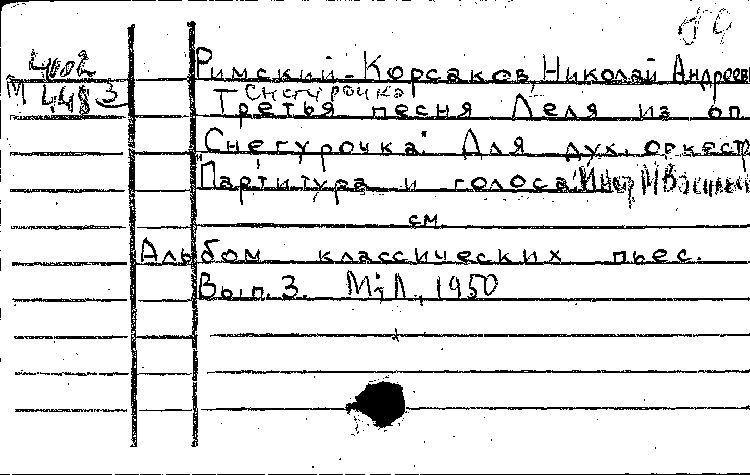 59
4002
М 448 3
Римский-Корсаков, Николай Андреев
Снегурочка
Третья песня Леля из оп.
"Снегурочка". Для дух. оркестр
Партитура и голоса. Инстр М Васильев
см.
Альбом классических пьес.
Вып. 3. М; Л, 1950